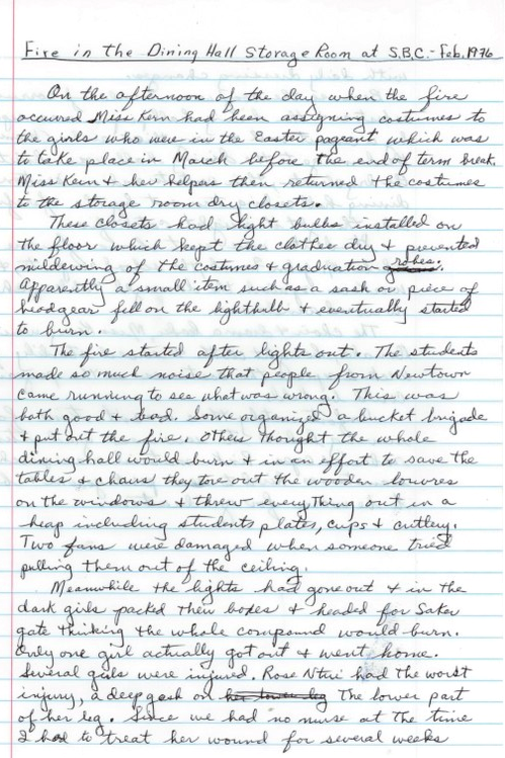 Fire in the Dining Hall Storage Room at S.B.C. - Feb. 1976
On the afternoon of the day when the fire
occured Miss Kern had been assigning costumes to
the girls who were in the Easter pageant which was
to take place in March before the end of term break.
Miss Kern & her helpers then returned the costumes
to the storage room dry closets.
These closets had light bulbs installed on
the floor which kept the clothes dry & prevented
mildewing of the costumes & graduation robes.
Apparently a small item such as a sash or piece of
headgear fell on the lightbulb & eventually started
to burn.
The fire started after lights out. The students
made so much noise that people from Newtown
came running to see what was wrong. This was
both good & bad. Some organized a bucket brigade
& put out the fire. Others thought the whole
dining hall would burn & in an effort to save the
tables & chairs they tore out the wooden louvres
on the windows & threw everything out in a
heap including students plates, cups & cutlery.
Two fans were damaged when someone tried
pulling them out of the ceiling.
Meanwhile the lights had gone out & in the
dark girls packed their boxes & headed for Saker
gate thinking the whole compound would burn.
Only one girl actually got out & went home.
Several girls were injured. Rose Ntui had the worst
injury, a deep gash on her lower leg The lower part
of her leg. Since we had no nurse at the time
I had to treat her wound for several weeks